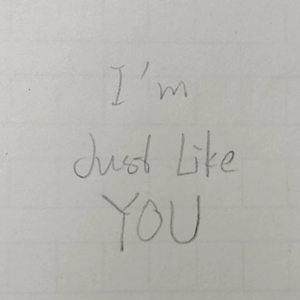 I'm
Just Like
YOU